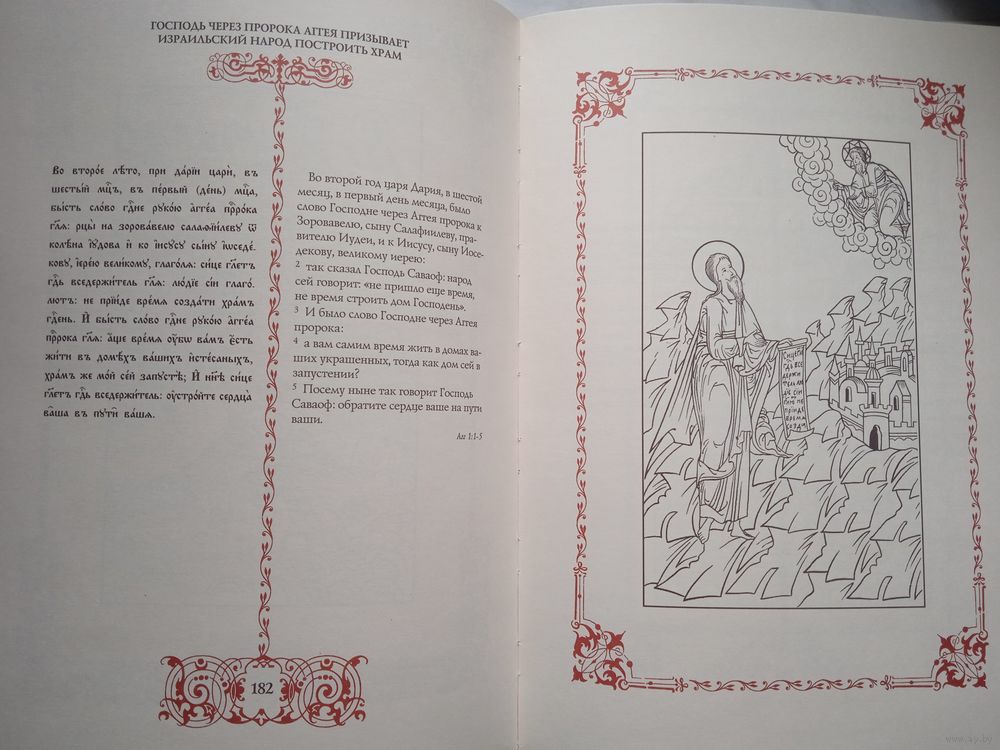 ГОСПОДЬ ЧЕРЕЗ ПРОРОКА АГГЕЯ ПРИЗЫВАЕТ
ИЗРАИЛЬСКИЙ НАРОД ПОСТРОИТЬ ХРАМ
Во второ́е лѣ́то, при да́рїи царѝ, въ
шесты́й мц҃ъ, въ пе́рвый (де́нь) мц҃а,
бы́сть сло́во гд҃не руко́ю а҆гге́а прⷪ҇ро́ка
гл҃я: рцы̀ на зорова́велю салаѳїи́леву ѿ
колѣ́на і҆ꙋ́дова и҆ ко і҆исꙋ́сꙋ сы́нꙋ і҆ѡседе́-
ковꙋ, і҆ере́ю вели́комꙋ, глаго́лѧ: си́це гл҃етъ
гд҃ь вседержи́тель гл҃ѧ: лю́дїе сі́и глаго́-
лютъ: не прїи́де вре́мѧ созда́ти хра́мъ
гд҃ень. И҆ бы́сть сло́во гд҃не руко́ю а҆гге́а
прⷪ҇ро́ка гл҃ѧ: а҆́ще вре́мѧ ᲂу҆́бѡ ва́мъ є҆́сть
жи́ти въ домѣ́хъ ва́шихъ и҆стеса́ныхъ,
хра́мъ же мо́й се́й запꙋстѣ̀; И҆ нн҃ѣ си́це
гл҃етъ гд҃ь вседержи́тель: ᲂу҆стро́йте сердца̀
ва̑ша въ пꙋти̑ ва́шѧ.
Во второй год царя Дария, в шестой
месяц, в первый день месяца, было
слово Господне через Аггея пророка к
Зоровавелю, сыну Салафиилеву, пра-
вителю Иудеи, и к Иисусу, сыну Иосе-
декову, великому иерею:
2 так сказал Господь Саваоф: народ
сей говорит: «не пришло еще время,
не время строить дом Господень».
3 И было слово Господне через Аггея
пророка:
4 а вам самим время жить в домах ва-
ших украшенных, тогда как дом сей в
запустении?
5 Посему ныне так говорит Господь
Саваоф: обратите сердце ваше на пути
ваши.
Агг 1:1-5
182
Сице гл҃
гд҃ь все
держи
тель лю
діе сіи
не
прїиде
время
созда
www.ay.by